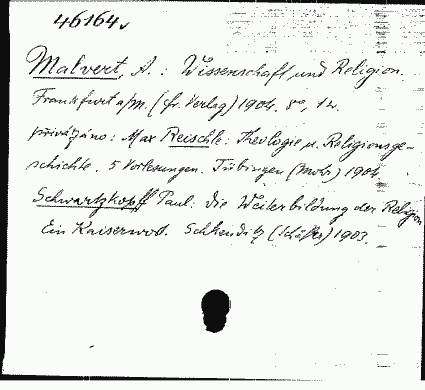 46164
Malvert, A.: Wissenschaft und Religion.
Frankfurt a/m. (Fr. Verlag) 1904. 8°, 1 k.
přivázáno: Max Reischle: Theologie u. Religionsge-
schichte. 5 Vorlesungen. Tübingen (Mohr) 1904.
Schwartzkopff Paul: Die Weiterbildung der Religion
Ein Kaiserwort. Schkeuditz (Schäfer) 1903.